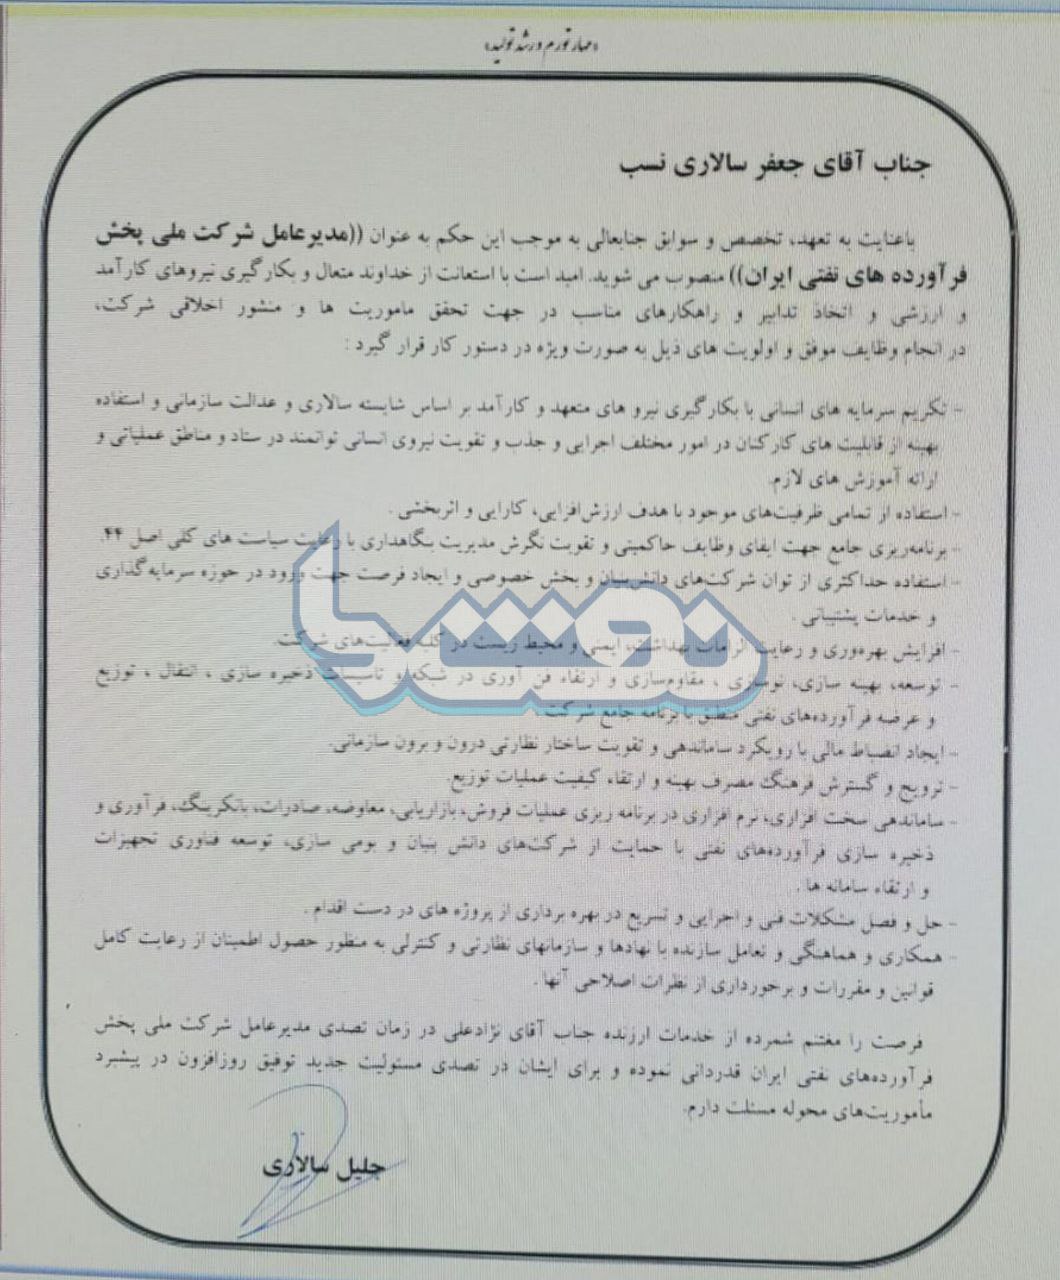 «مهار تورم و رشد تولید»
جناب آقای جعفر سالاری نسب
باعنایت به تعهد، تخصص و سوابق جنابعالی به موجب این حکم به عنوان ((مدیرعامل شرکت ملی پخش
فرآورده های نفتی ایران)) منصوب می شوید. امید است با استعانت از خداوند متعال و بکارگیری نیروهای کارآمد
و ارزشی و اتخاذ تدابیر و راهکارهای مناسب در جهت تحقق ماموریت ها و منشور اخلاقی شرکت،
در انجام وظایف موفق و اولویت های ذیل به صورت ویژه در دستور کار قرار گیرد :
- تکریم سرمایه های انسانی با بکارگیری نیرو های متعهد و کارآمد بر اساس شایسته سالاری و عدالت سازمانی و استفاده
بهینه از قابلیت های کارکنان در امور مختلف اجرایی و جذب و تقویت نیروی انسانی توانمند در ستاد و مناطق عملیاتی و
ارائه آموزش های لازم.
- استفاده از تمامی ظرفیت‌های موجود با هدف ارزش‌افزایی، کارایی و اثربخشی .
- برنامه‌ریزی جامع جهت ایفای وظایف حاکمیتی و تقویت نگرش مدیریت بنگاهداری با رعایت سیاست های کلی اصل ۴۴.
- استفاده حداکثری از توان شرکت‌های دانش‌بنیان و بخش خصوصی و ایجاد فرصت جهت ورود در حوزه سرمایه‌گذاری
و خدمات پشتیبانی .
- افزایش بهره‌وری و رعایت الزامات بهداشت، ایمنی و محیط زیست در کلیه فعالیت‌های شرکت.
- توسعه، بهینه سازی، نوسازی ، مقاوم‌سازی و ارتقاء فن آوری در شبکه و تاسیسات ذخیره سازی ، انتقال ، توزیع
و عرضه فرآورده‌های نفتی منطبق با برنامه جامع شرکت .
- ایجاد انضباط مالی با رویکرد ساماندهی و تقویت ساختار نظارتی درون و برون سازمانی.
- ترویج و گسترش فرهنگ مصرف بهینه و ارتقاء کیفیت عملیات توزیع.
- ساماندهی سخت افزاری، نرم افزاری در برنامه ریزی عملیات فروش، بازاریابی، معاوضه، صادرات، بانکرینگ، فرآوری و
ذخیره سازی فرآورده‌های نفتی با حمایت از شرکت‌های دانش بنیان و بومی سازی، توسعه فناوری تجهیزات
و ارتقاء سامانه ها .
- حل و فصل مشکلات فنی و اجرایی و تسریع در بهره برداری از پروژه های در دست اقدام .
- همکاری و هماهنگی و تعامل سازنده با نهادها و سازمانهای نظارتی و کنترلی به منظور حصول اطمینان از رعایت کامل
قوانین و مقررات و برخورداری از نظرات اصلاحی آنها .
فرصت را مغتنم شمرده از خدمات ارزنده جناب آقای نژادعلی در زمان تصدی مدیرعامل شرکت ملی پخش
فرآورده‌های نفتی ایران قدردانی نموده و برای ایشان در تصدی مسئولیت جدید توفیق روزافزون در پیشبرد
مأموریت‌های محوله مسئلت دارم.
جلیل سالاری